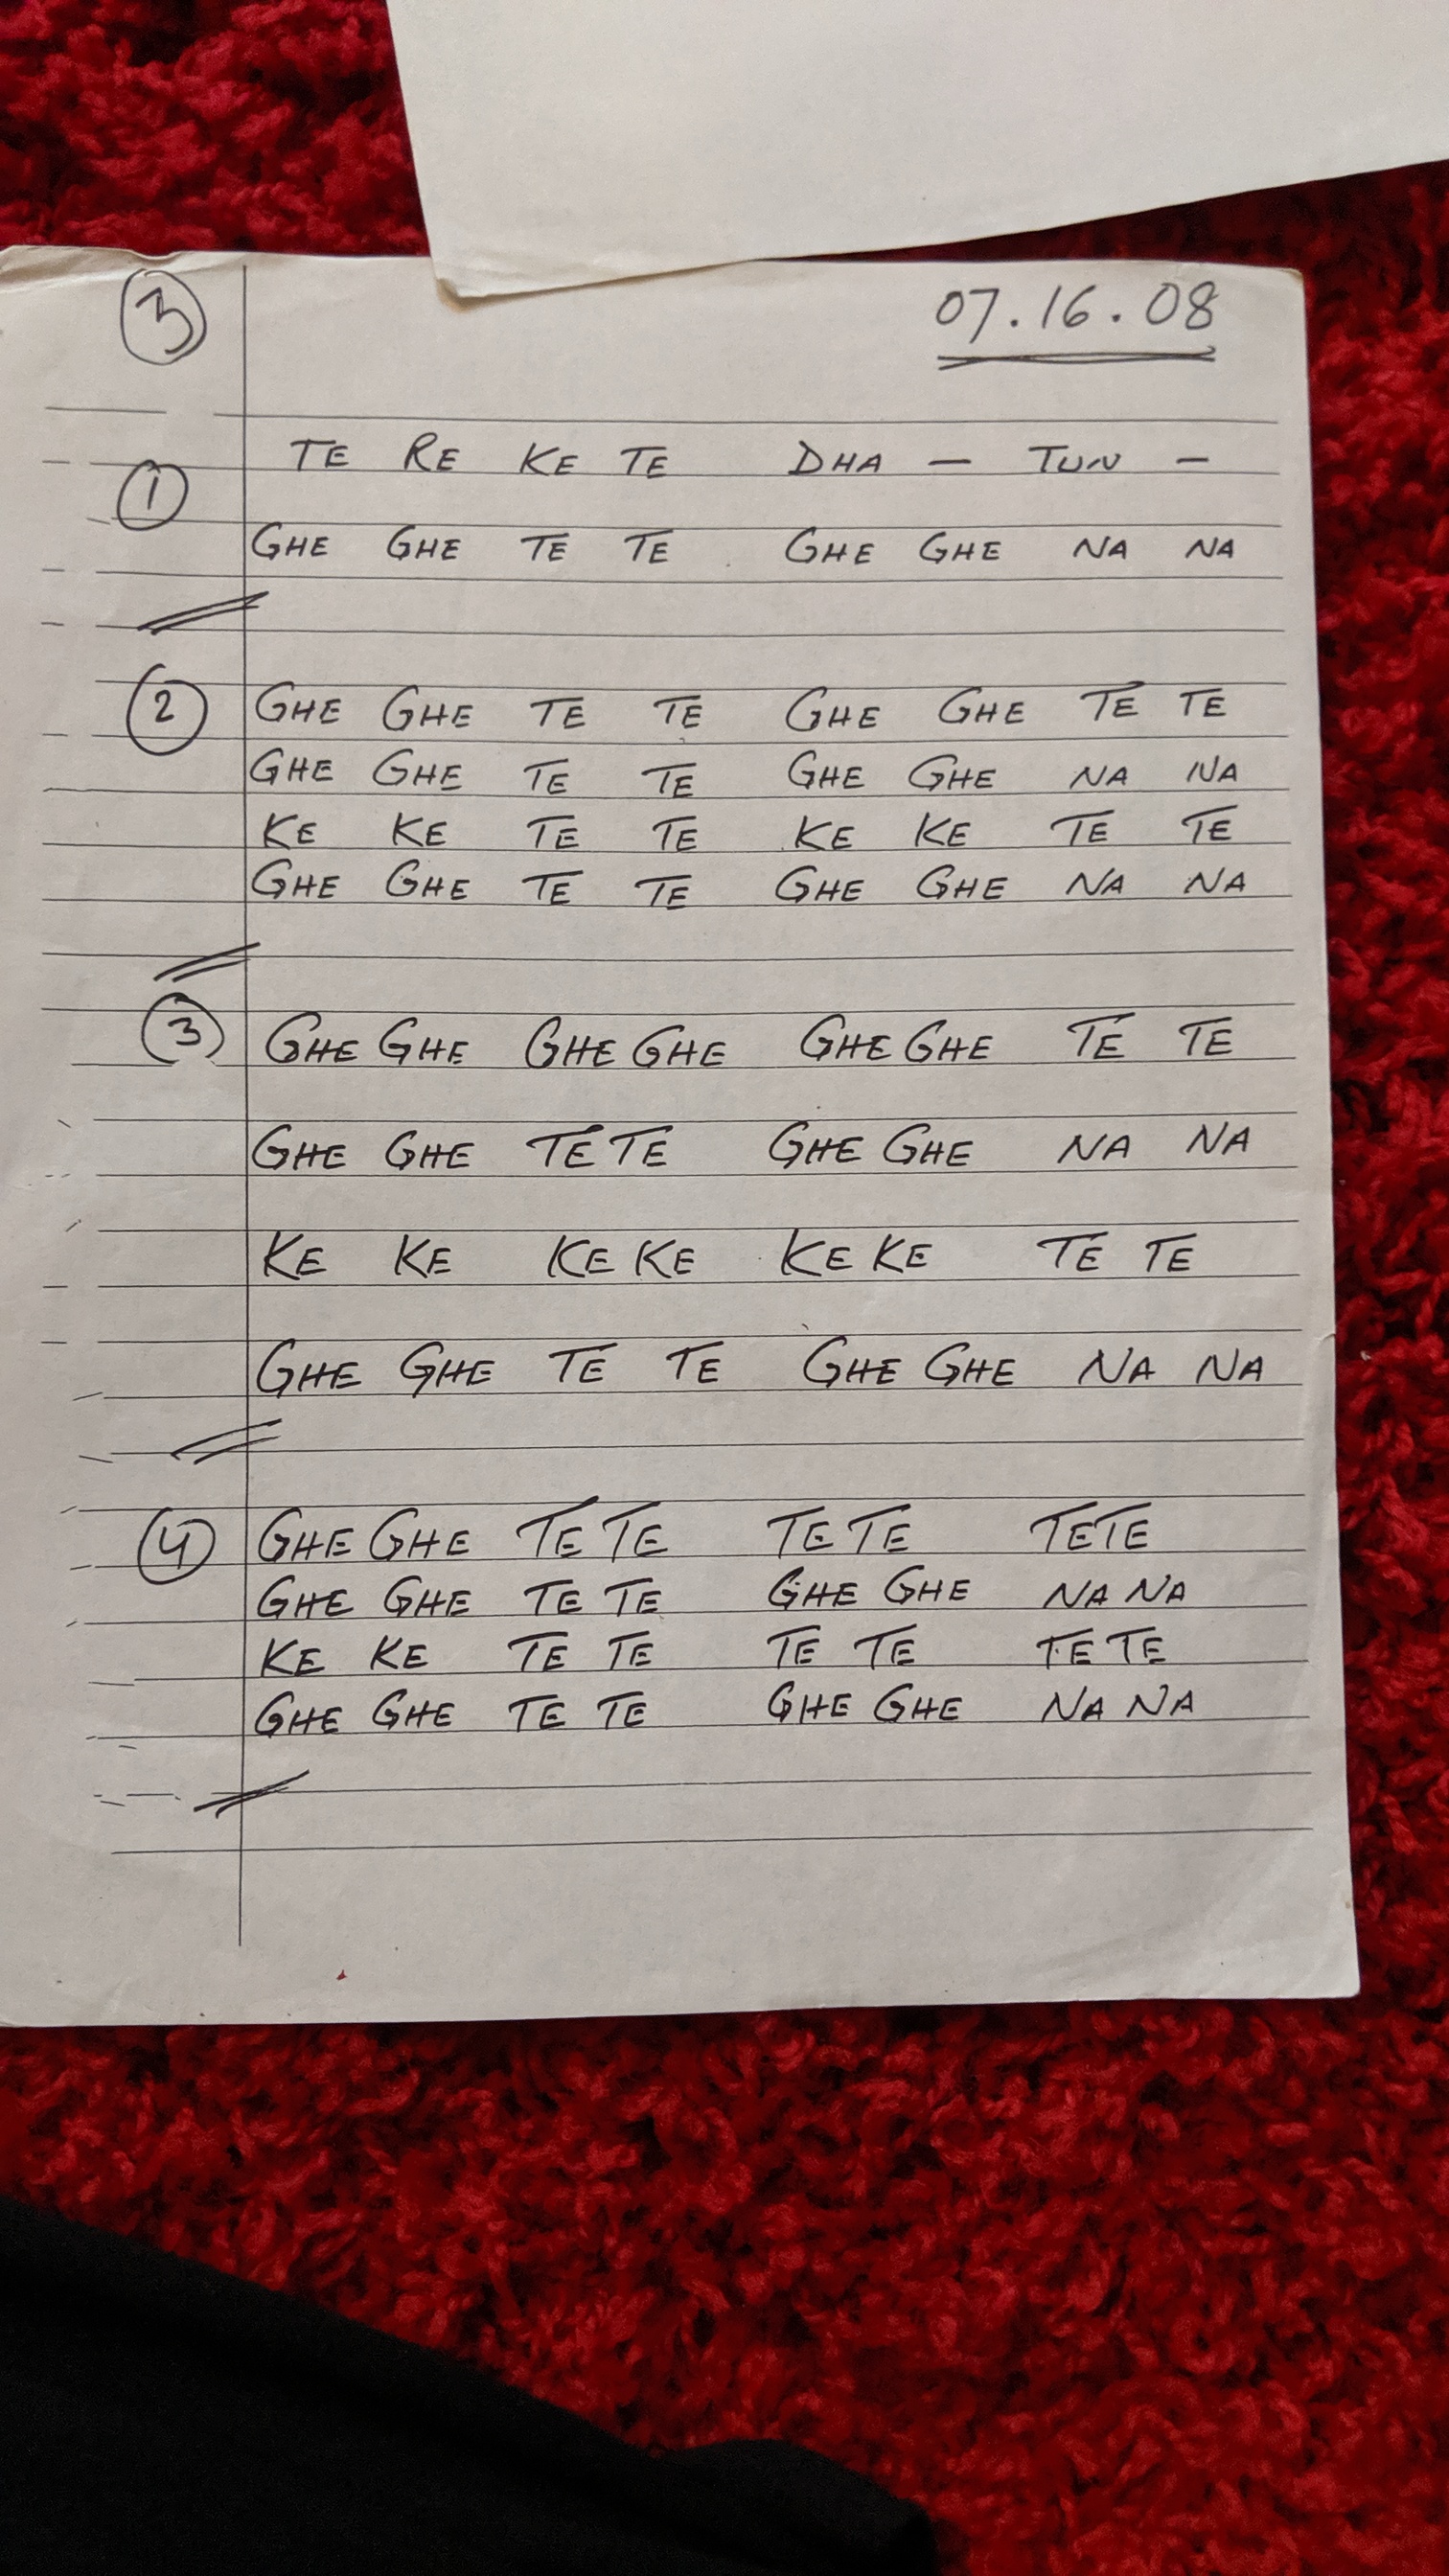 3 07.16.08
TE RE KE TE DHA – TUN –
1
GHE GHE TE TE GHE GHE NA NA
2 GHE GHE TE TE GHE GHE TE TE
GHE GHE TE TE GHE GHE NA NA
KE KE TE TE KE KE TE TE
GHE GHE TE TE GHE GHE NA NA
3 GHE GHE GHE GHE GHE GHE TE TE
GHE GHE TE TE GHE GHE NA NA
KE KE KE KE KE KE TE TE
GHE GHE TE TE GHE GHE NA NA
4 GHE GHE TE TE TE TE TETE
GHE GHE TE TE GHE GHE NA NA
KE KE TE TE TE TE TE TE
GHE GHE TE TE GHE GHE NA NA